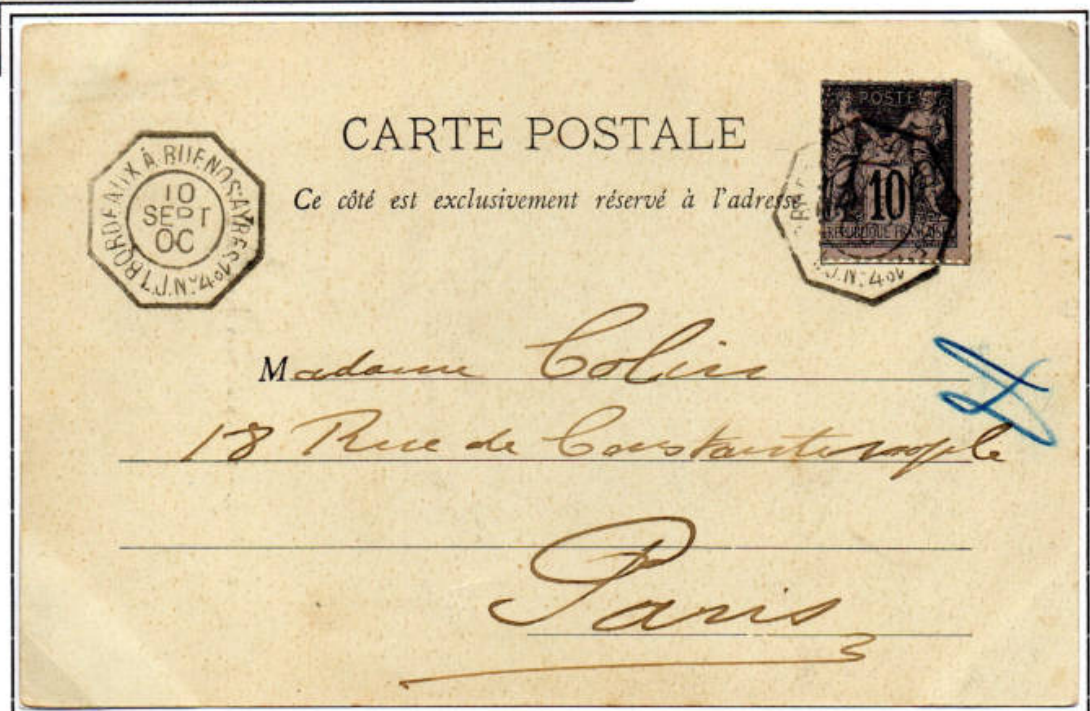 CARTE POSTALE
Ce côté est exclusivement réservé à l'adresse
BORDEAUX À BUENOS-AYRES 1º
10
SEPT
00
L.J.Nº4
POSTE
10
REPUBLIQUE FRANÇAISE
J.Nº4
Madame Colin
18 Rue de Constantinople
Paris